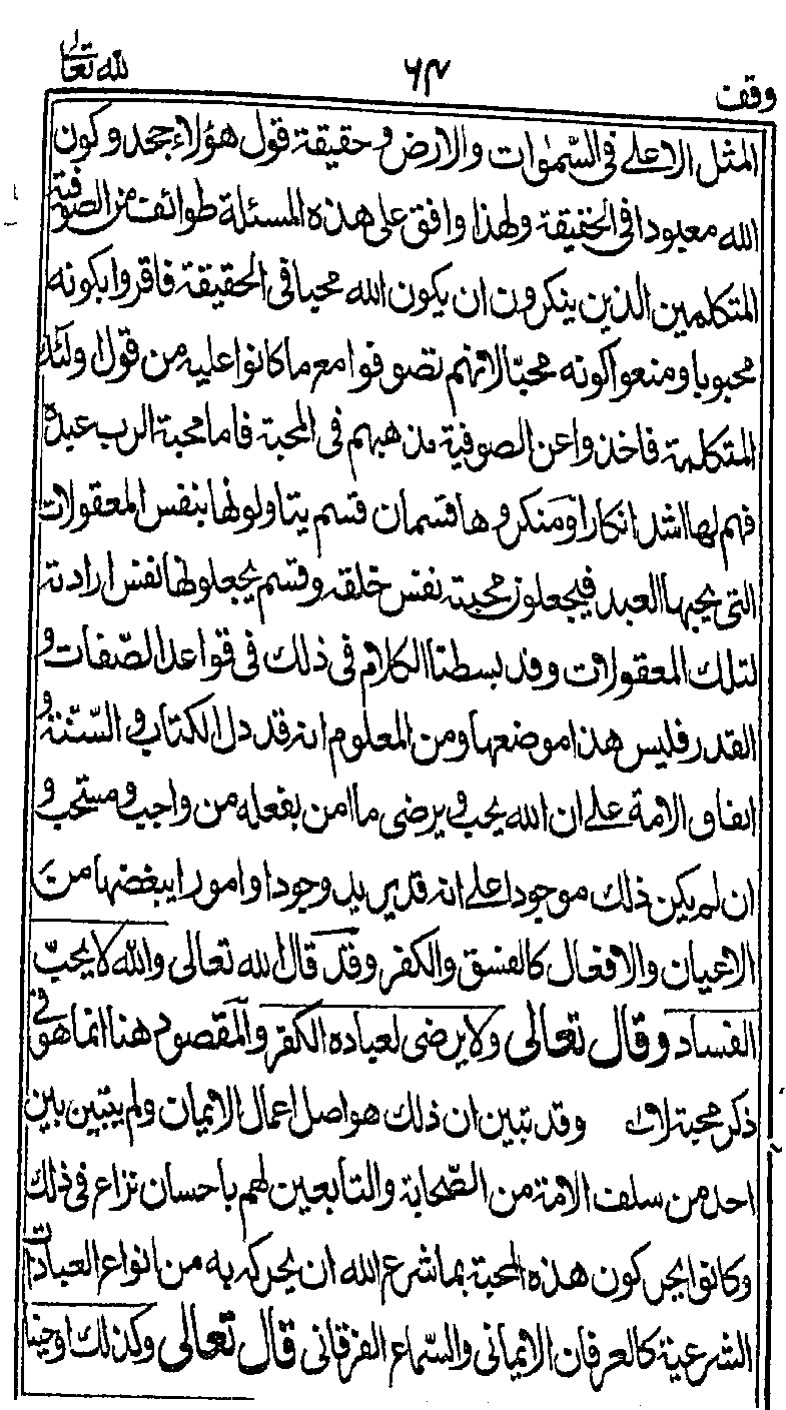 وقف ٦٤ لله تعالى
المثل الاعلے فی السّمٰوات والارض و حقیقة قول هؤلاء جحد و كون
الله معبودا فی الحقیقة ولهذا وافق علی هذه المسئلة طوائف من الصوفیة
المتكلمین الذین ینكرون ان یكون الله محبا فی الحقیقة فاقروا بكونه
محبوبا ومنعوا كونه محبّا لانهم تصوفوا مع ما كانوا علیه من قول اولئك
المتكلمة فاخذوا عن الصوفیة مذهبهم فی المحبة فاما محبة الرب عبده
فهم لها اشد انكارا ومنكروها قسمان قسم یتاولونها بنفس المعقولات
التی یحبها العبد فیجعلون محبته نفس خلقه وقسم یجعلونها نفس ارادته
لتلك المعقولات وقد بسطنا الكلام فی ذلك فی قواعد الصّفات و
القدر فلیس هذا موضعها ومن المعلوم انه قد دل الكتاب و السّنة و
اتفاق الامة علے ان الله یحب و یرضی ما امن بفعله من واجب و مستحب و
ان لم یكن ذلك موجودا علے انه قد یرید وجودا و امور ا یبغضها من
الاعیان والافعال كالفسق والكفر وقد قال الله تعالی والله لا یحبّ
الفساد وقال تعالی ولا یرضی لعباده الكفر والمقصود هنا انما هو فی
ذكر محبة وقد تبین ان ذلك هو اصل اعمال الایمان ولم یتبین بین
احد من سلف الامة من الصّحابة والتابعین لهم باحسان نزاع فی ذلك
وكانوا یحركون هذه المحبة بما شرع الله ان یحركه به من انواع العبادات
الشرعیة كالعرفان الایمانی والسّماع الفرقانی قال تعالی وكذلك اوحینا